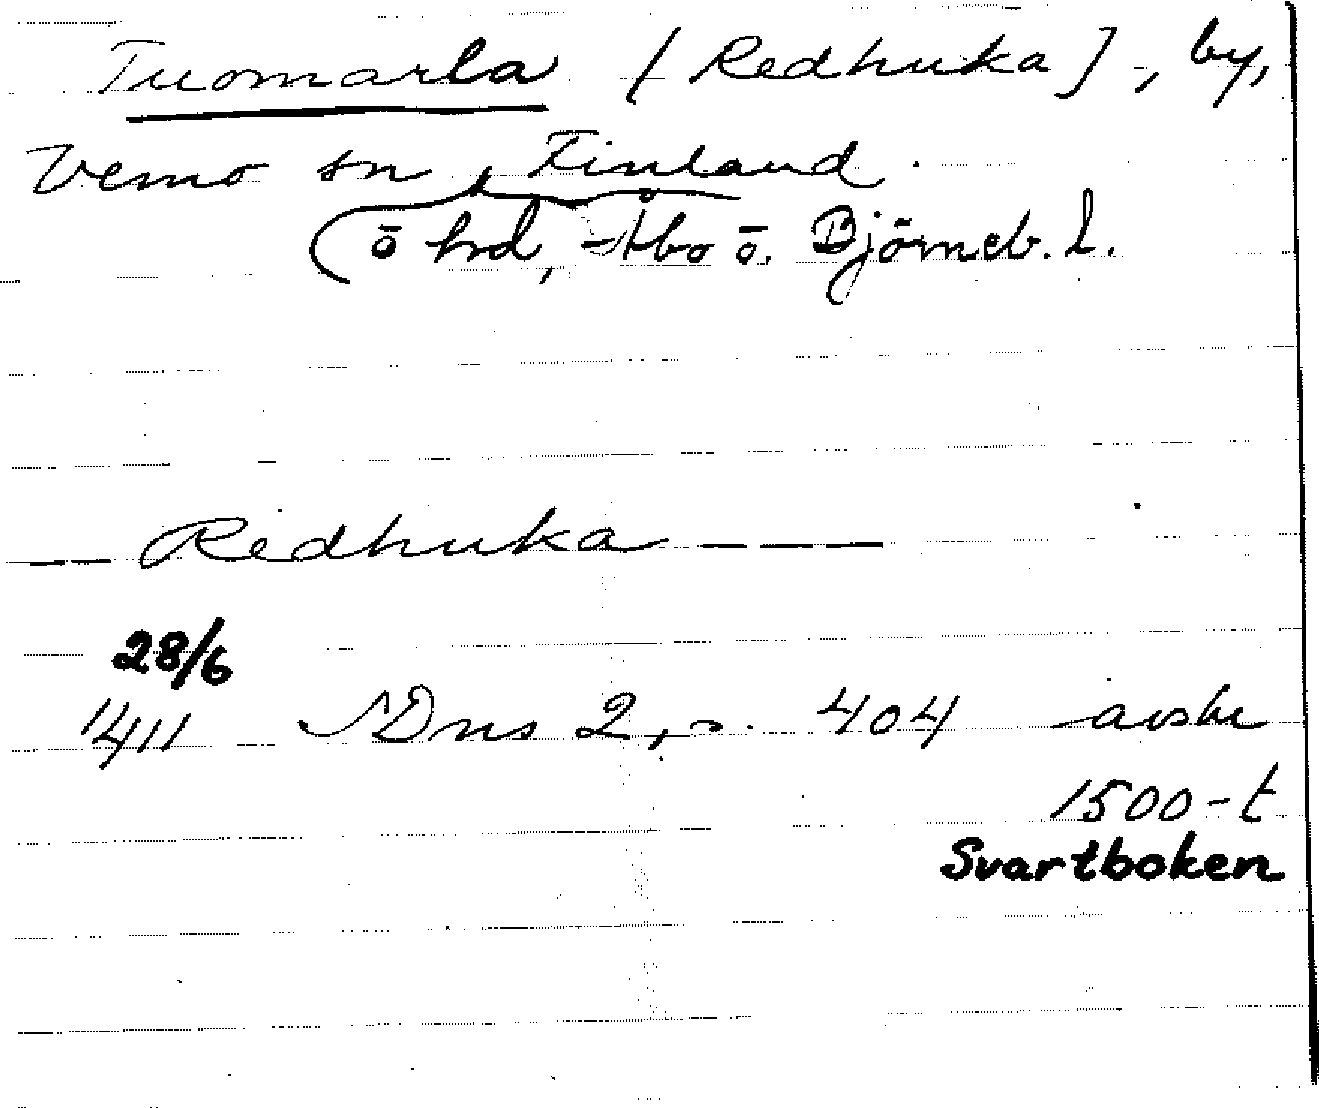 Tuomarla [Redhuka], by,
Vemo sn, Finland.
ö hd, Åbo o. Björneb. l.
Redhuka
28/6
1411 SDns 2, s. 404 avskr
1500-t
Svartboken